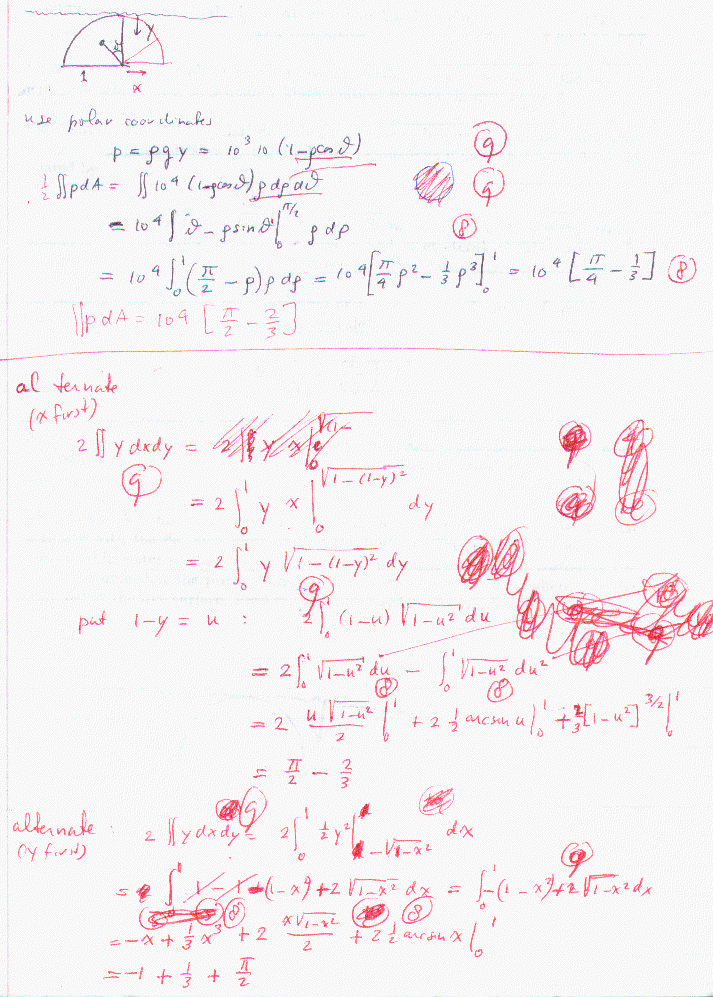 ϑ
y
1
x
use polar coordinates
p = ρ g y = 10³ 10 (1-ρcosϑ) ⑨
½ ∬pdA = ∬ 10⁴ (1-ρcosϑ) ρ dρ dϑ ⑨
= 10⁴ ∫ ϑ - ρ sinϑ |₀^{π/2} ρ dρ ⑧
= 10⁴ ∫₀¹ (π/2 - ρ) ρ dρ = 10⁴ [π/4 ρ² - 1/3 ρ³]₀¹ = 10⁴ [π/4 - 1/3] ⑧
∬pdA = 10⁴ [π/2 - 2/3]
alternate
(x first)
2 ∬ y dxdy =
⑨
= 2 ∫₀¹ y x |₀^{√(1-(1-y)²)} dy
= 2 ∫₀¹ y √(1-(1-y)²) dy
⑨
put 1-y = u : 2 ∫₀¹ (1-u) √(1-u²) du
= 2 ∫₀¹ √(1-u²) du - ∫₀¹ √(1-u²) du²
⑧ ⑧
= 2 u√(1-u²)/2 |₀¹ + 2 ½ arcsin u |₀¹ + 2/3 [1-u²]^{3/2} |₀¹
= π/2 - 2/3
alternate : ⑨
(y first)
2 ∬ y dxdy = 2 ∫₀¹ ½ y² | 1-√(1-x²) dx
= ∫₀¹ 1 - 1 -(1-x²) + 2 √(1-x²) dx = ∫₀¹ -(1-x²) + 2 √(1-x²) dx
⑨
⑧ ⑧
= -x + 1/3 x³ + 2 x√(1-x²)/2 + 2 ½ arcsin x |₀¹
= -1 + 1/3 + π/2